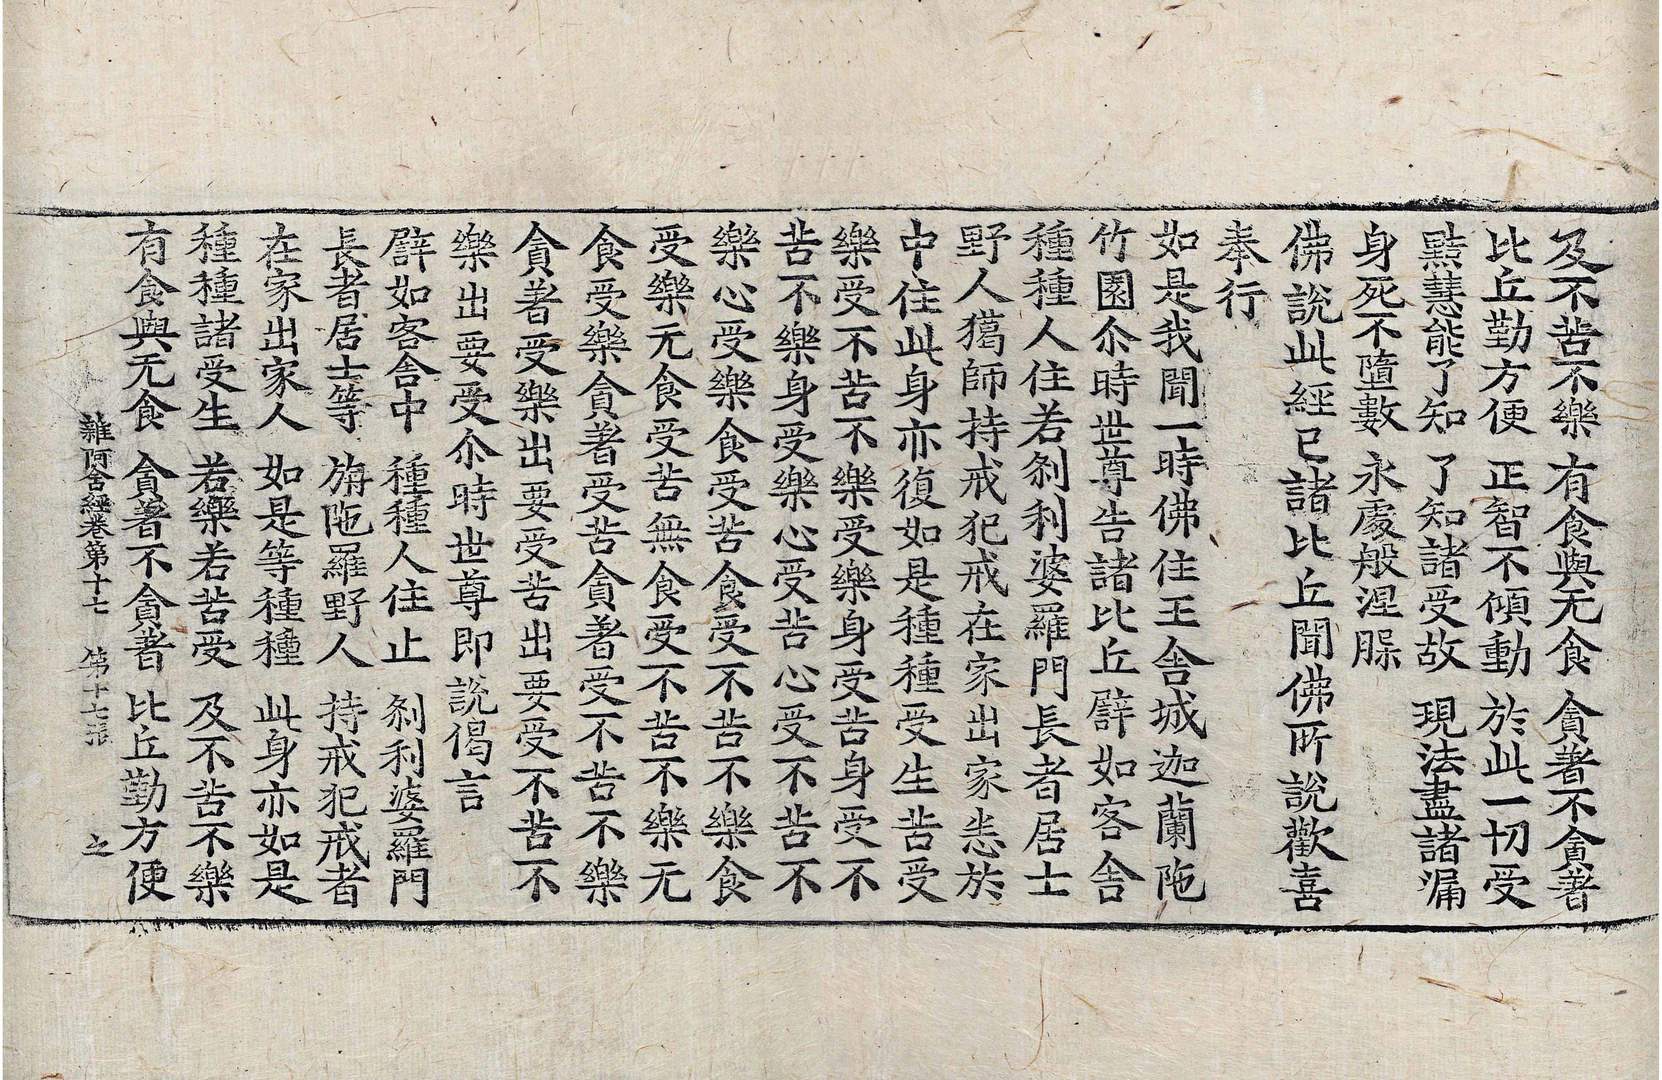 及不苦不樂 有食與无食 貪著不貪著
比丘勤方便 正智不傾動 於此一切受
黠慧能了知 了知諸受故 現法盡諸漏
身死不墮數 永處般涅槃
佛說此經已諸比丘聞佛所說歡喜
奉行
如是我聞一時佛住王舍城迦蘭陁
竹園尒時世尊告諸比丘譬如客舍
種種人住若刹利婆羅門長者居士
野人獦師持戒犯戒在家出家悉於
中住此身亦復如是種種受生苦受
樂受不苦不樂受樂身受苦身受不
苦不樂身受樂心受苦心受不苦不
樂心受樂食受苦食受不苦不樂食
受樂无食受苦無食受不苦不樂无
食受樂貪著受苦貪著受不苦不樂
貪著受樂出要受苦出要受不苦不
樂出要受尒時世尊即說偈言
譬如客舍中 種種人住止 刹利婆羅門
長者居士等 旃陁羅野人 持戒犯戒者
在家出家人 如是等種種 此身亦如是
種種諸受生 若樂若苦受 及不苦不樂
有食與无食 貪著不貪著 比丘勤方便
雜阿含經卷第十七 第十七張 之